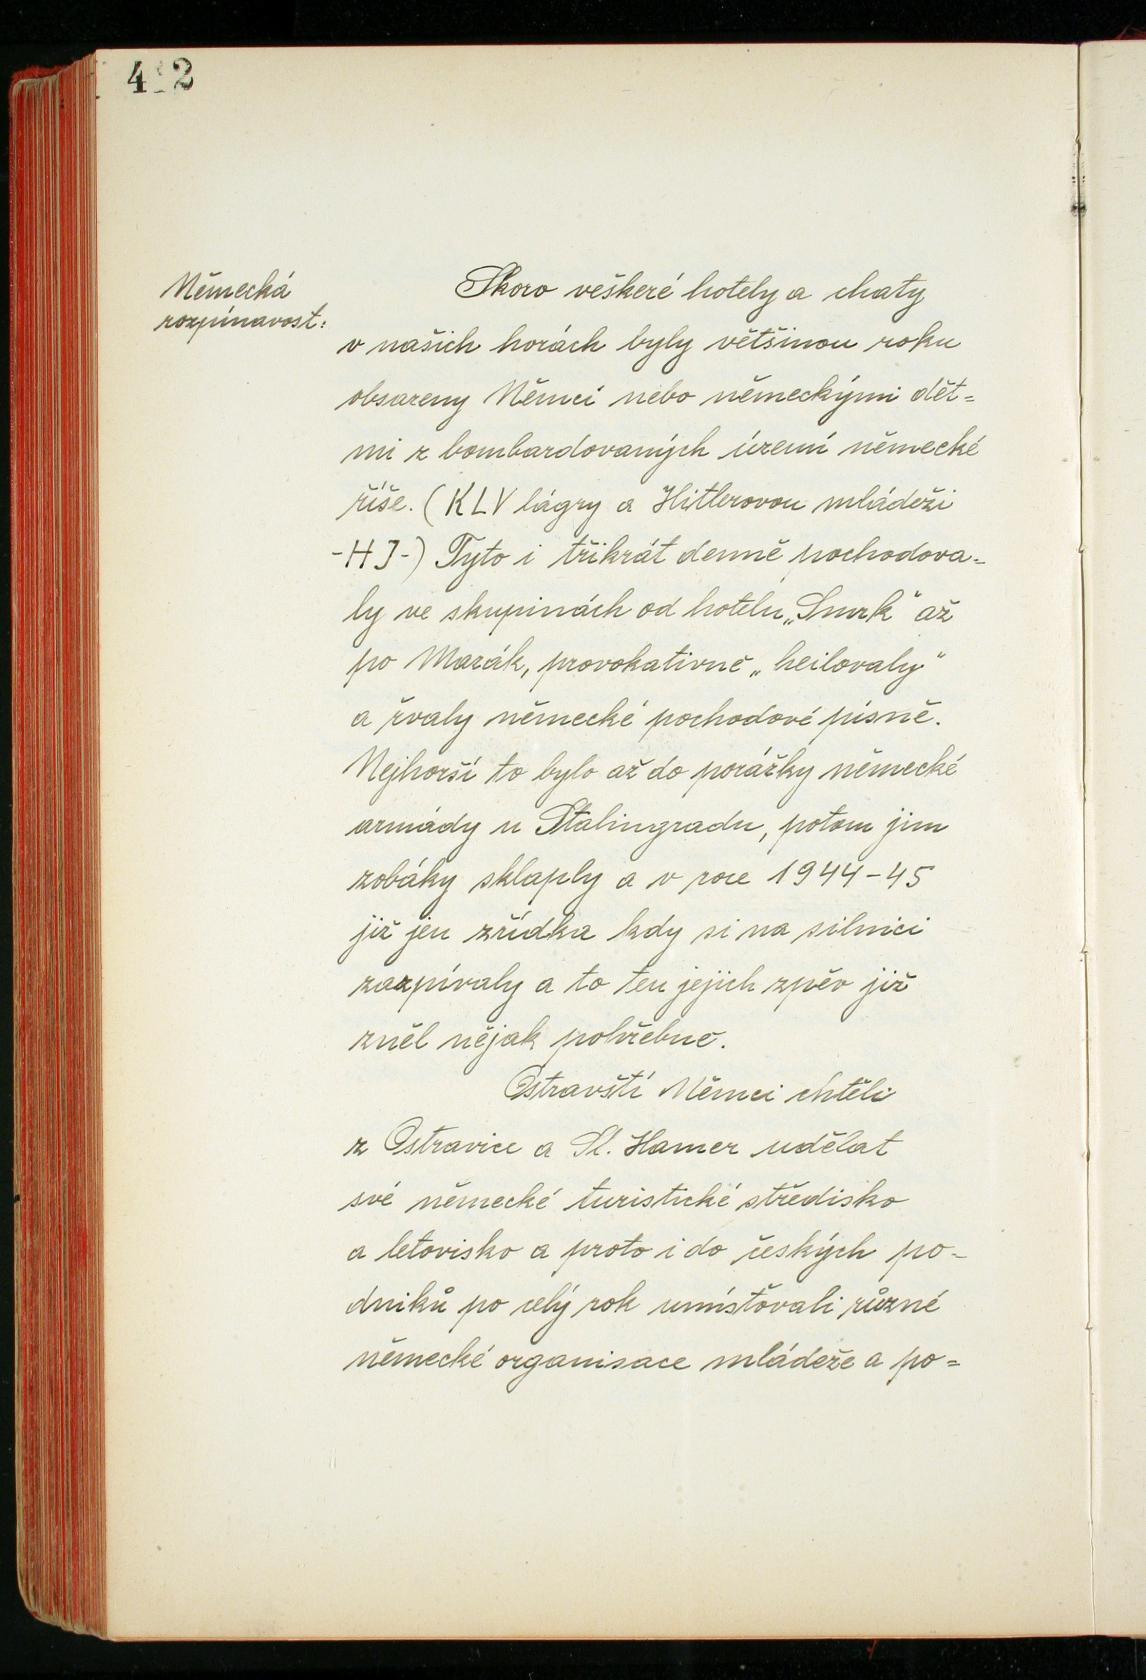 412
Německá
rozpínavost:
Skoro veškeré hotely a chaty
v našich horách byly většinou roku
obsazeny Němci nebo německými dět=
mi z bombardovaných území německé
říše. (KLV lágry a Hitlerovou mládeži
-HJ-) Tyto i třikrát denně pochodova=
ly ve skupinách od hotelu „Smrk" až
po Mazák, provokativně „heilovaly"
a řvaly německé pochodové písně.
Nejhorší to bylo až do porážky německé
armády u Stalingradu, potom jim
zobáky sklaply a v roce 1944-45
již jen zřídka kdy si na silnici
zazpívaly a to ten jejich zpěv již
zněl nějak pohřebně.
Ostravští Němci chtěli
z Ostravice a St. Hamer udělat
své německé turistické středisko
a letovisko a proto i do českých po-
dniků po celý rok umísťovali různé
německé organisace mládeže a po=